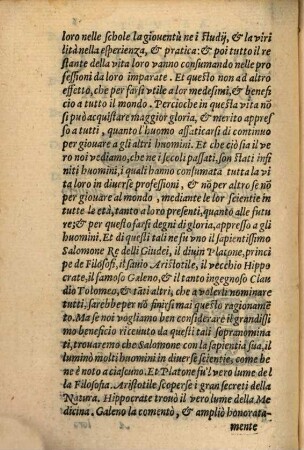 loro nelle schole la giouentù ne i studij, & la viri
lità nella esperienza, & pratica: & poi tutto il re
stante della vita loro vanno consumando nelle pro
fessioni da loro imparate. Et questo non ad altro
effetto, che per farsi vtile a lor medesimi, & benefi
cio a tutto il mondo. Percioche in questa vita nō
si può acquistare maggior gloria, & merito appres
so a tutti, quanto l'huomo affaticarsi di continuo
per giouare a gli altri huomini. Et che ciò sia il ve
ro noi vediamo, che ne i secoli passati, son stati infi
niti huomini, i quali hanno consumata tutta la vi
ta loro in diuerse professioni, & nō per altro se nō
per giouare al mondo, mediante le lor scientie in
tutte le età, tanto a loro presenti, quanto alle futu
re; & per questo farsi degni di gloria, appresso a gli
huomini. Et di questi tali ne fu vno il sapientissimo
Salomone Re delli Giudei, il diuin Platone, princi
pe de Filosofi, il sauio Aristotile, il vecchio Hippo
crate, il famoso Galeno, & il tanto ingegnoso Clau
dio Tolomeo, & tāti altri, che a volerli nominare
tutti, sarebbe per nō finirsi mai questo ragionamē
to. Ma se noi vogliamo ben considerare il grandissi
mo beneficio riceuuto da questi tali sopranomina
ti, trouaremo che Salomone con la sapientia sua, il
luminò molti huomini in diuerse scientie, come be
ne è noto a ciascuno. Et Platone fu'l vero lume del
la Filosofia. Aristotile scoperse i gran secreti della
Natura. Hippocrate trouò il vero lume della Me
dicina. Galeno la comentò, & ampliò honorata-
mente